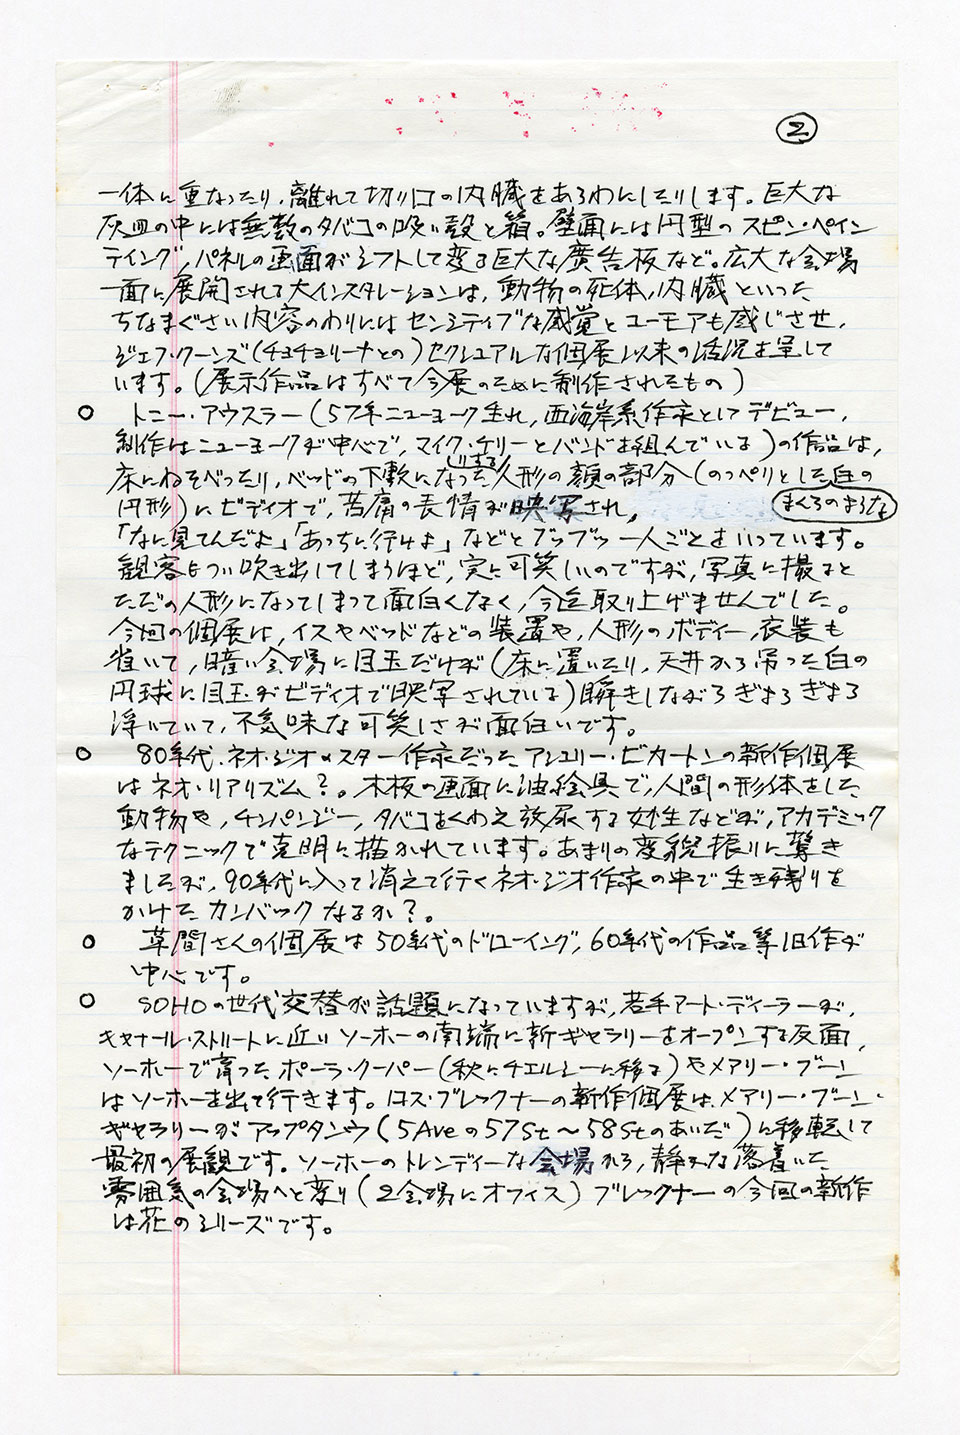 ②
一体に重なったり、離れて切り口の内臓をあらわにしたりします。巨大な
灰皿の中には無数のタバコの吸い殻と箱。壁面には円型のスピン・ペイン
ティング、パネルの画面がシフトして変る巨大な廣告板など。広大な会場
一面に展開される大インスタレーションは、動物の死体、内臓といった
ちなまぐさい内容のわりにはセンシティブな感覚とユーモアも感じさせ、
ジェフ・クーンズ(チョチョリーナとの)セクシュアルな個展以来の活況を呈して
います。(展示作品はすべて今展のために制作されたもの)
○ トニー・アウスラー(57年ニューヨーク生れ、西海岸系作家としてデビュー、
制作はニューヨークが中心で、マイク・ケリーとバンドを組んでいる)の作品は、
床にねそべったり、ベッドの下敷になった人形の顔の部分(のっぺりとした白の
円形)にビディオで、苦痛の表情が映写され、
まくらのような
「なに見てんだよ」「あっちに行けよ」などとブツブツ一人ごとをいっています。
観客もつい吹き出してしまうほど、実に可笑しいのですが、写真に撮ると
ただの人形になってしまって面白くなく、今迄取り上げませんでした。
今回の個展は、イスやベッドなどの装置や、人形のボディー、衣装も
省いて、暗い会場に目玉だけが(床に置いたり、天井から吊った白の
円球に目玉がビディオで映写されている)瞬きしながらぎょろぎょろ
浮いていて、不気味な可笑しさが面白いです。
○ 80年代、ネオ・ジオ・スター作家だったアシュリー・ビカートンの新作個展
はネオ・リアリズム?。木板の画面に油絵具で、人間の形体をした
動物や、チンパンジー、タバコをくわえ放尿する女性などが、アカデミック
なテクニックで克明に描かれています。あまりの変貌振りに驚き
ましたが、90年代に入って消えて行くネオ・ジオ作家の中で生き残りを
かけたカンバックなるか?。
○ 草間さんの個展は50年代のドローイング、60年代の作品等旧作が
中心です。
○ SOHOの世代交替が話題になっていますが、若手アート・ディーラーが、
キャナール・ストリートに近いソーホーの南端に新ギャラリーをオープンする反面、
ソーホーで育ったポーラ・クーパー(秋にチェルシーに移る)やメアリー・ブーン
はソーホーを出て行きます。ロス・ブレックナーの新作個展は、メアリー・ブーン・
ギャラリーがアップタンウ(5Aveの57St〜58Stのあいだ)に移転して
最初の展観です。ソーホーのトレンディーな会場から、静かな落着いた
雰囲気の会場へと変り(2会場にオフィス)ブレックナーの今回の新作
は花のシリーズです。